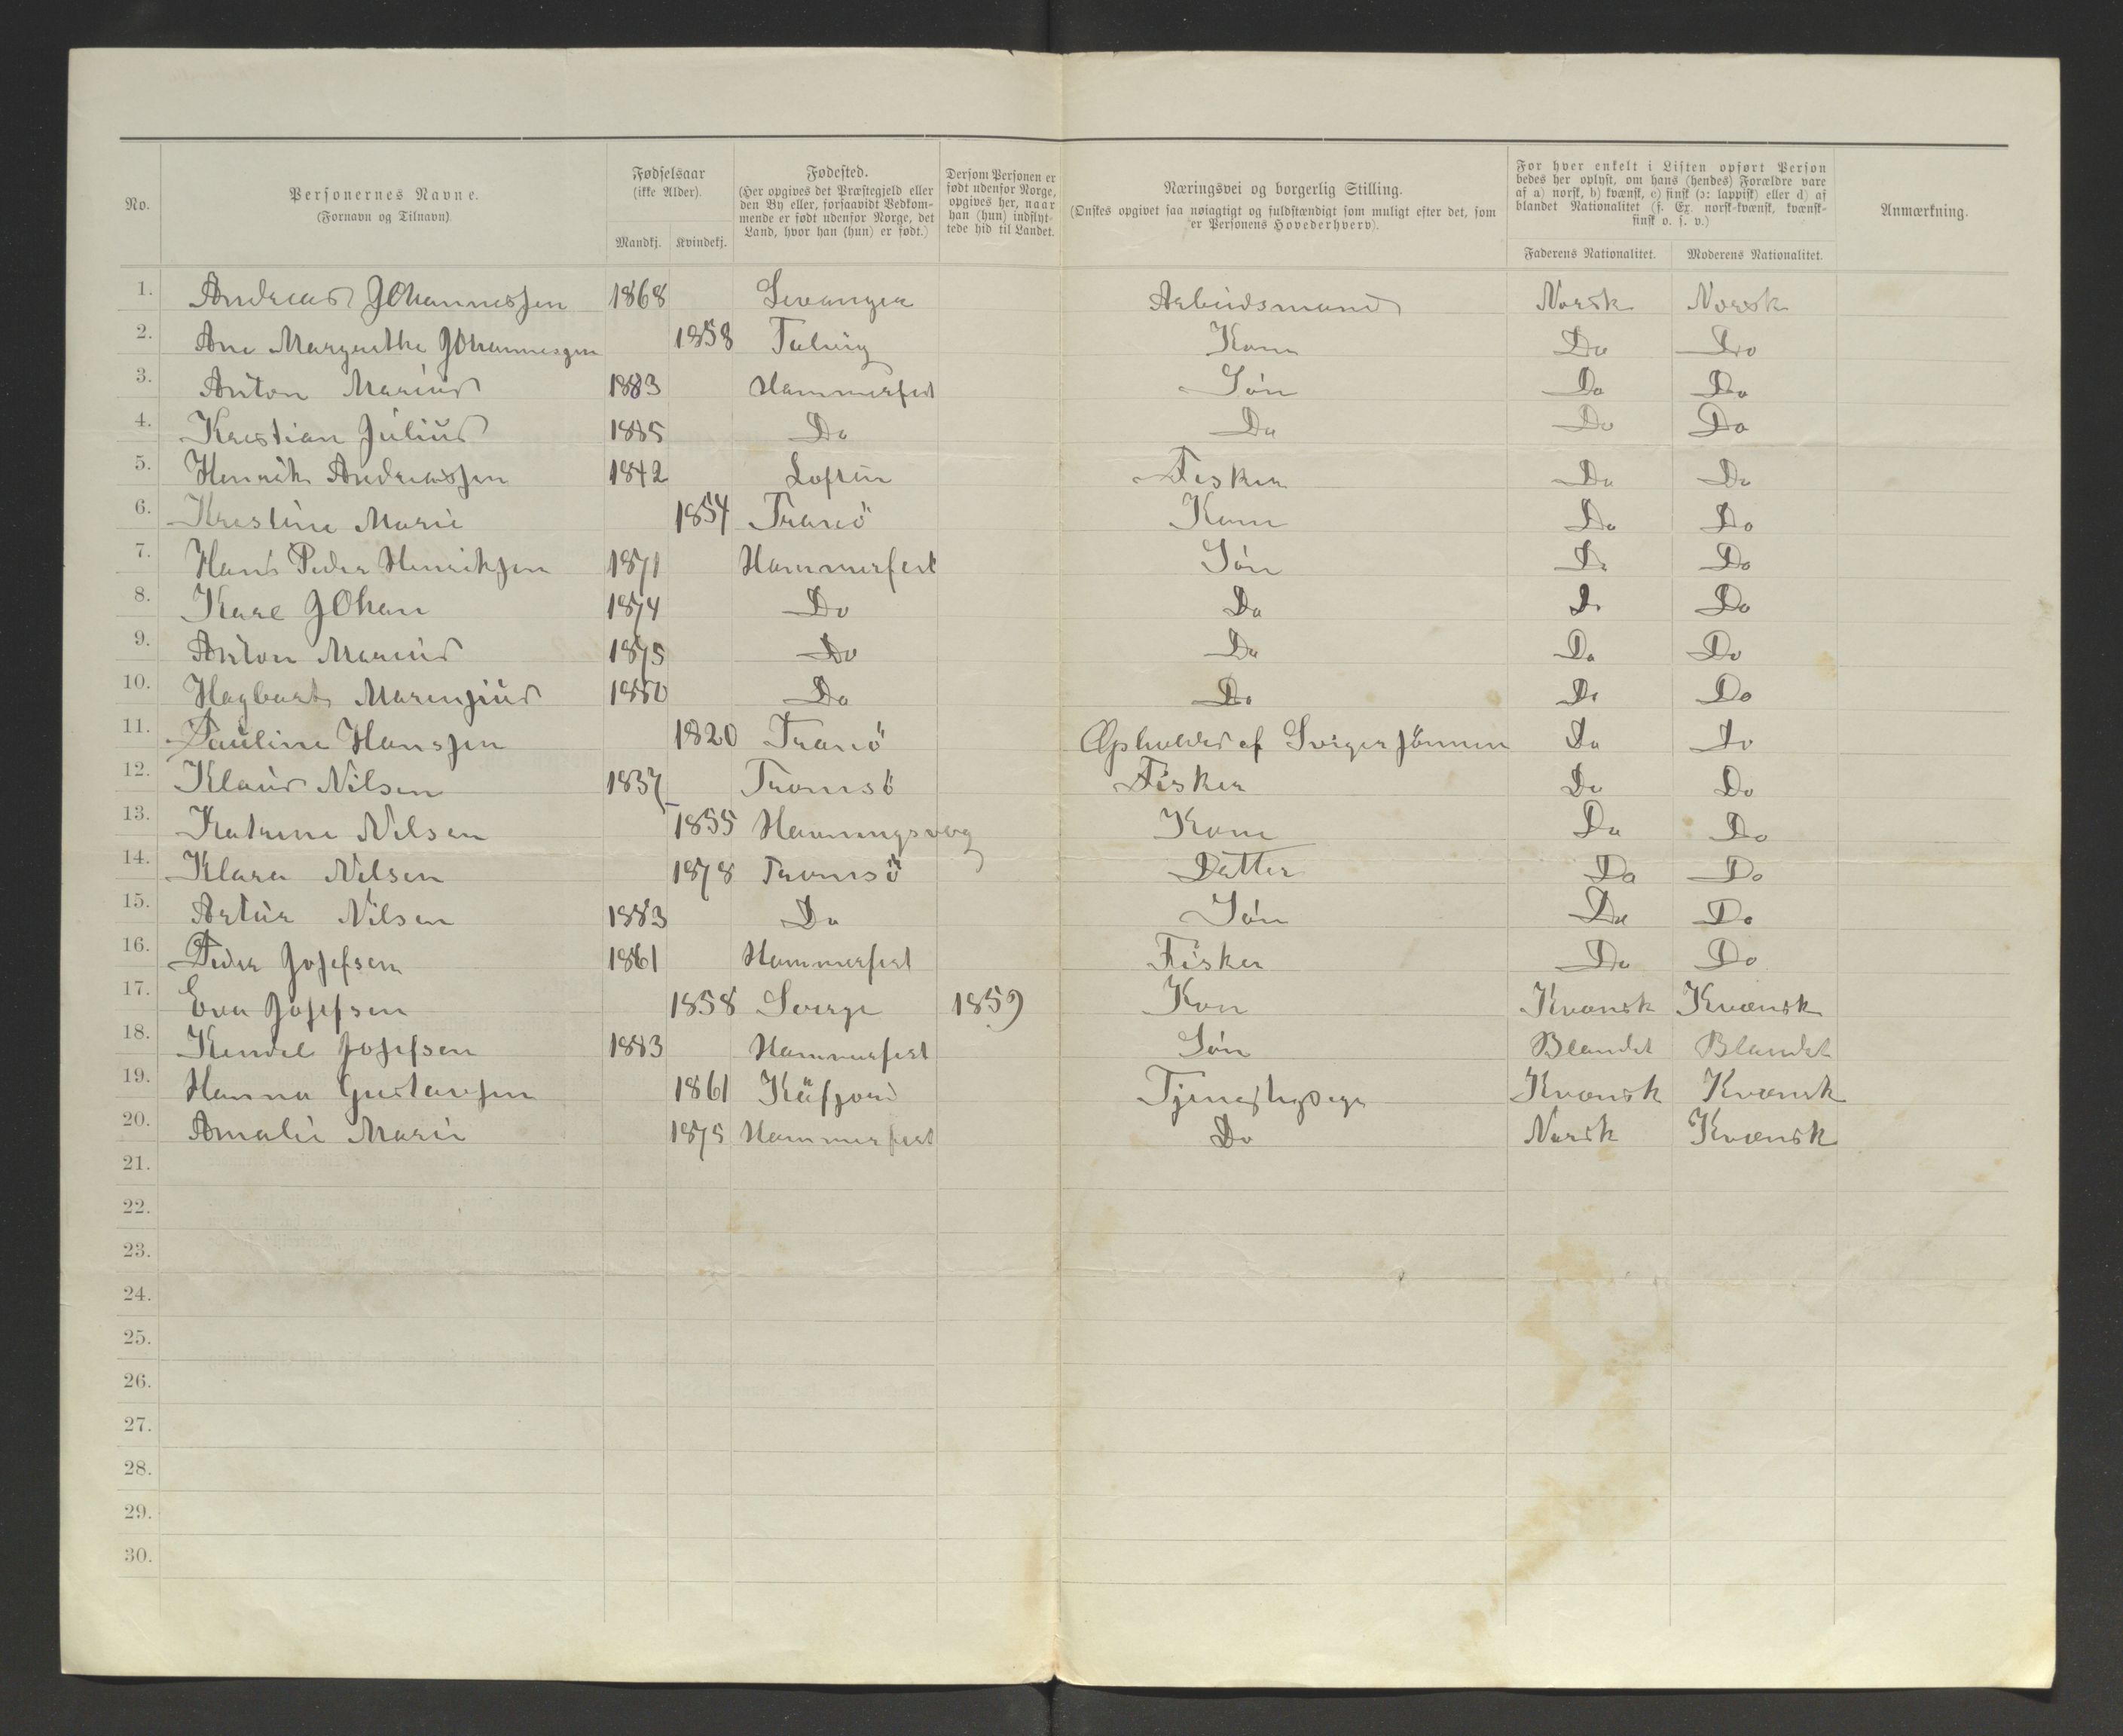 No.
Personernes Navne.
(Fornavn og Tilnavn).
Fødselsaar
(ikke Alder).
Mandkj. Kvindekj.
Fødested.
(Her opgives det Præstegjeld eller
den By eller, forsaavidt Vedkom-
mende er født udenfor Norge, det
Land, hvor han (hun) er født.)
Dersom Personen er
født udenfor Norge,
opgives her, naar
han (hun) indflyt-
tede hid til Landet.
Næringsvei og borgerlig Stilling.
(Ønskes opgivet saa nøiagtigt og fuldstændigt som muligt efter det, som
er Personens Hovederhverv).
For hver enkelt i Listen opført Person
bedes her oplyst, om hans (hendes) Forældre vare
af a) norsk, b) kvænsk, c) finsk (ɔ: lappisk) eller d) af
blandet Nationalitet (f. Ex. norsk-kvænsk, kvænsk-
finsk o. s. v.)
Faderens Nationalitet. Moderens Nationalitet.
Anmærkning.
1. Andreas JOhannessen 1868 Levanger Arbeidsmand Norsk Norsk
2. Ane Margrethe JOhannesgen 1858 Talvig Kone Do Do
3. Anton Marius 1883 Hammerfest Søn Do Do
4. Kristian Julius 1885 Do Do Do Do
5. Henrik Andreassen 1842 Loften Fisker Do Do
6. Kristine Marie 1854 Tranö Kone Do Do
7. Hans Peder Henriksen 1871 Hammerfest Søn Do Do
8. Karl JOhan 1874 Do Do Do Do
9. Anton Marius 1875 Do Do Do Do
10. Hagbart Marensius 1880 Do Do Do Do
11. Pauline Hanssen 1820 Tranö Opholdes af Svigersönnen Do Do
12. Klaus Nilsen 1837 Tromsö Fisker Do Do
13. Katrine Nilsen 1855 Honningsvog Kone Do Do
14. Klara Nilsen 1878 Tromsö Datter Do Do
15. Artur Nilsen 1883 Do Søn Do Do
16. Peder Josefsen 1861 Hammerfest Fisker Do Do
17. Eva Josefsen 1858 Sverge 1859 Kon Kvænsk Kvænsk
18. Josefsen 1883 Hammerfest Søn Blandet Blandet
19. Hanna Gustavsen 1861 Kåfjord Kvænsk Kvænsk
20. Amalie Marie 1875 Hammerfest Do Norsk Kvænsk
21.
22.
23.
24.
25.
26.
27.
28.
29.
30.